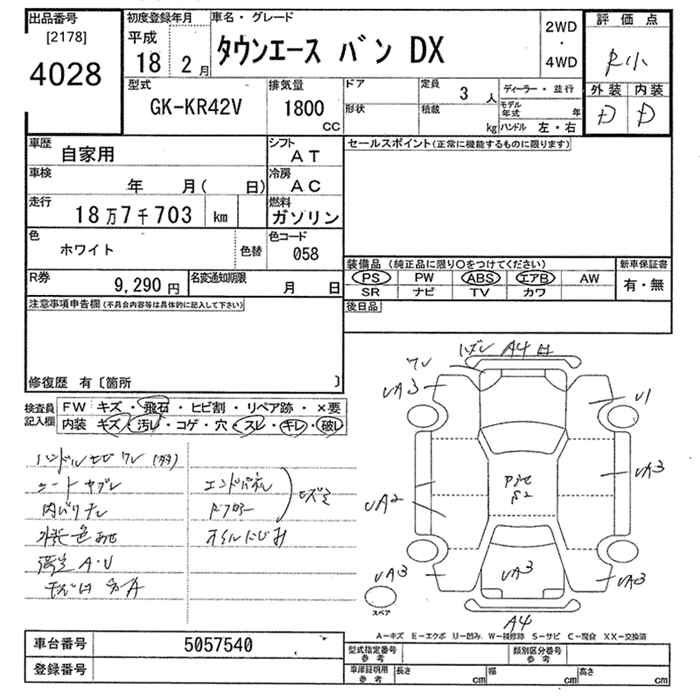 出品番号
[2178]
4028
初度登録年月
平成
18 2月
車名・グレード
タウンエース バン DX
2WD
・
4WD
評価点
R小
外装 内装
D D
型式
GK-KR42V
排気量
1800
CC
ドア
形状
定員
3 人
積載
kg
ディーラー・並行
モデル年式 年
ハンドル 左・右
車歴
自家用
シフト
AT
車検
年 月( 日)
冷房
AC
走行
18万7千703 km
燃料
ガソリン
色
ホワイト
色替
色コード
058
R券
9,290円
名変通知期限
月 日
セールスポイント(正常に機能するものに限ります)
装備品(純正品に限り○をつけてください)
PS PW ABS エアB AW
SR ナビ TV カワ
新車保証書
有・無
後日品
注意事項申告欄(不具合内容等は具体的に記入して下さい)
修復歴 有〔箇所 〕
検査員記入欄
FW キズ・飛石・ヒビ割・リペア跡・×要
内装 キズ・汚レ・コゲ・穴・スレ・キレ・破レ
シートヤブレ
内バリナシ
エンドパネル
オイルにじみ
ワレ
A4
UA3
U1
UA3
UA2
UA3
UA3
UA3
A4
スペア
A−キズ E−エクボ U−凹み W−補修跡 S−サビ C−腐食 XX−交換済
車台番号
5057540
登録番号
型式指定番号
参考
類別区分番号
参考
車庫証明用
参考
長さ cm
幅 cm
高さ cm